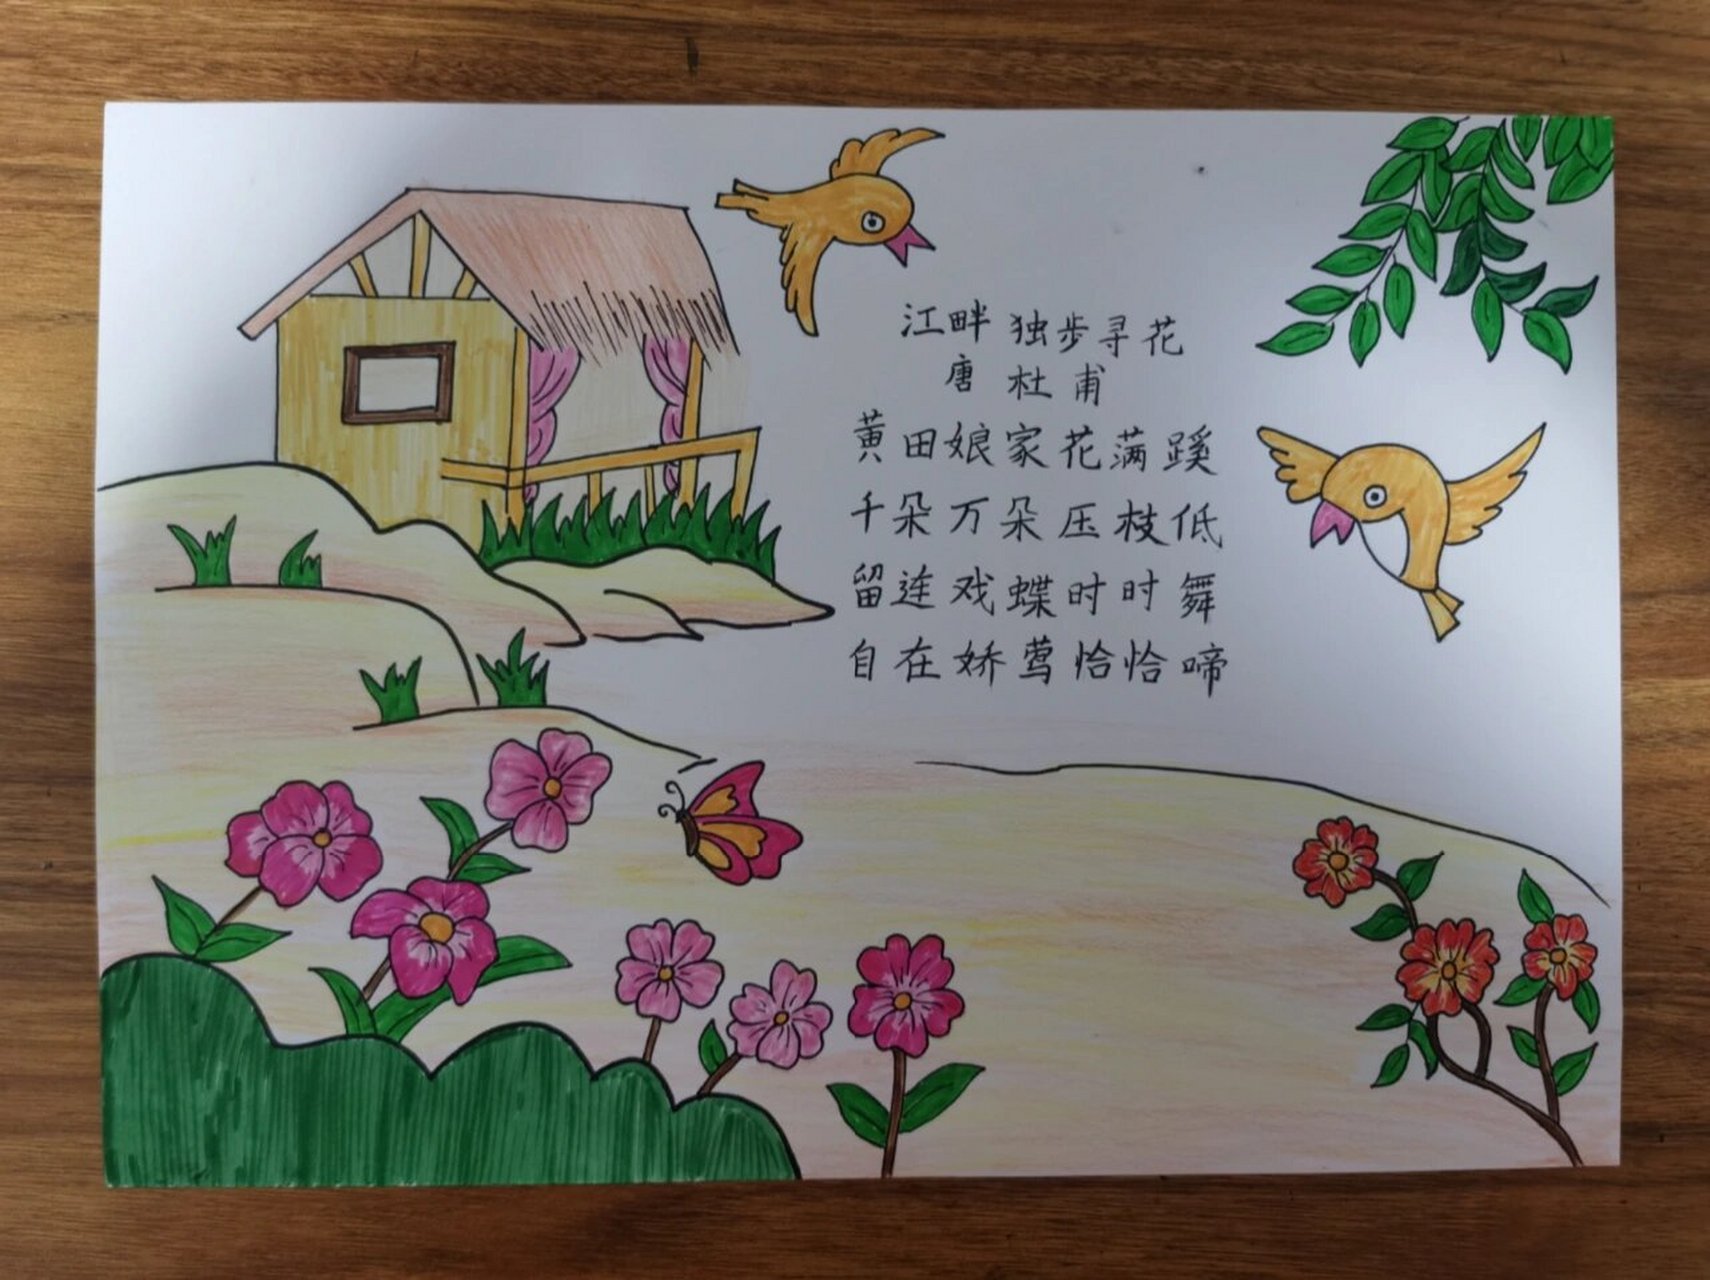 江畔独步寻花
唐 杜甫
黄田娘家花满蹊
千朵万朵压枝低
留连戏蝶时时舞
自在娇莺恰恰啼